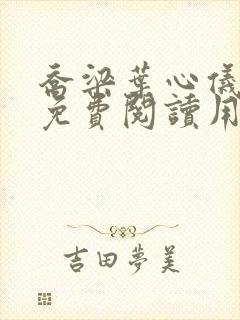 喬梁葉心儀
免費閱讀用
吉田夢美